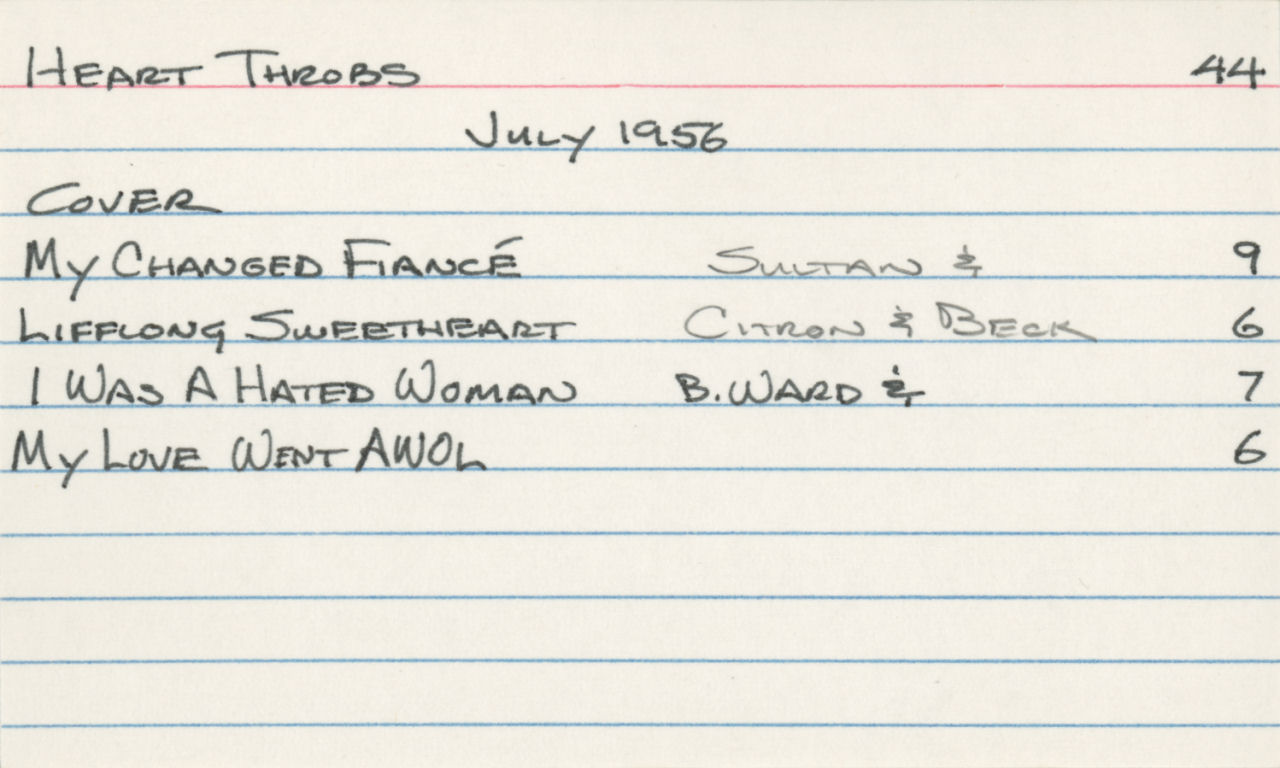 HEART THROBS 44
JULY 1956
COVER
MY CHANGED FIANCÉ SULTAN & 9
LIFFLONG SWEETHEART CITRON & BECK 6
I WAS A HATED WOMAN B. WARD & 7
MY LOVE WENT AWOL 6